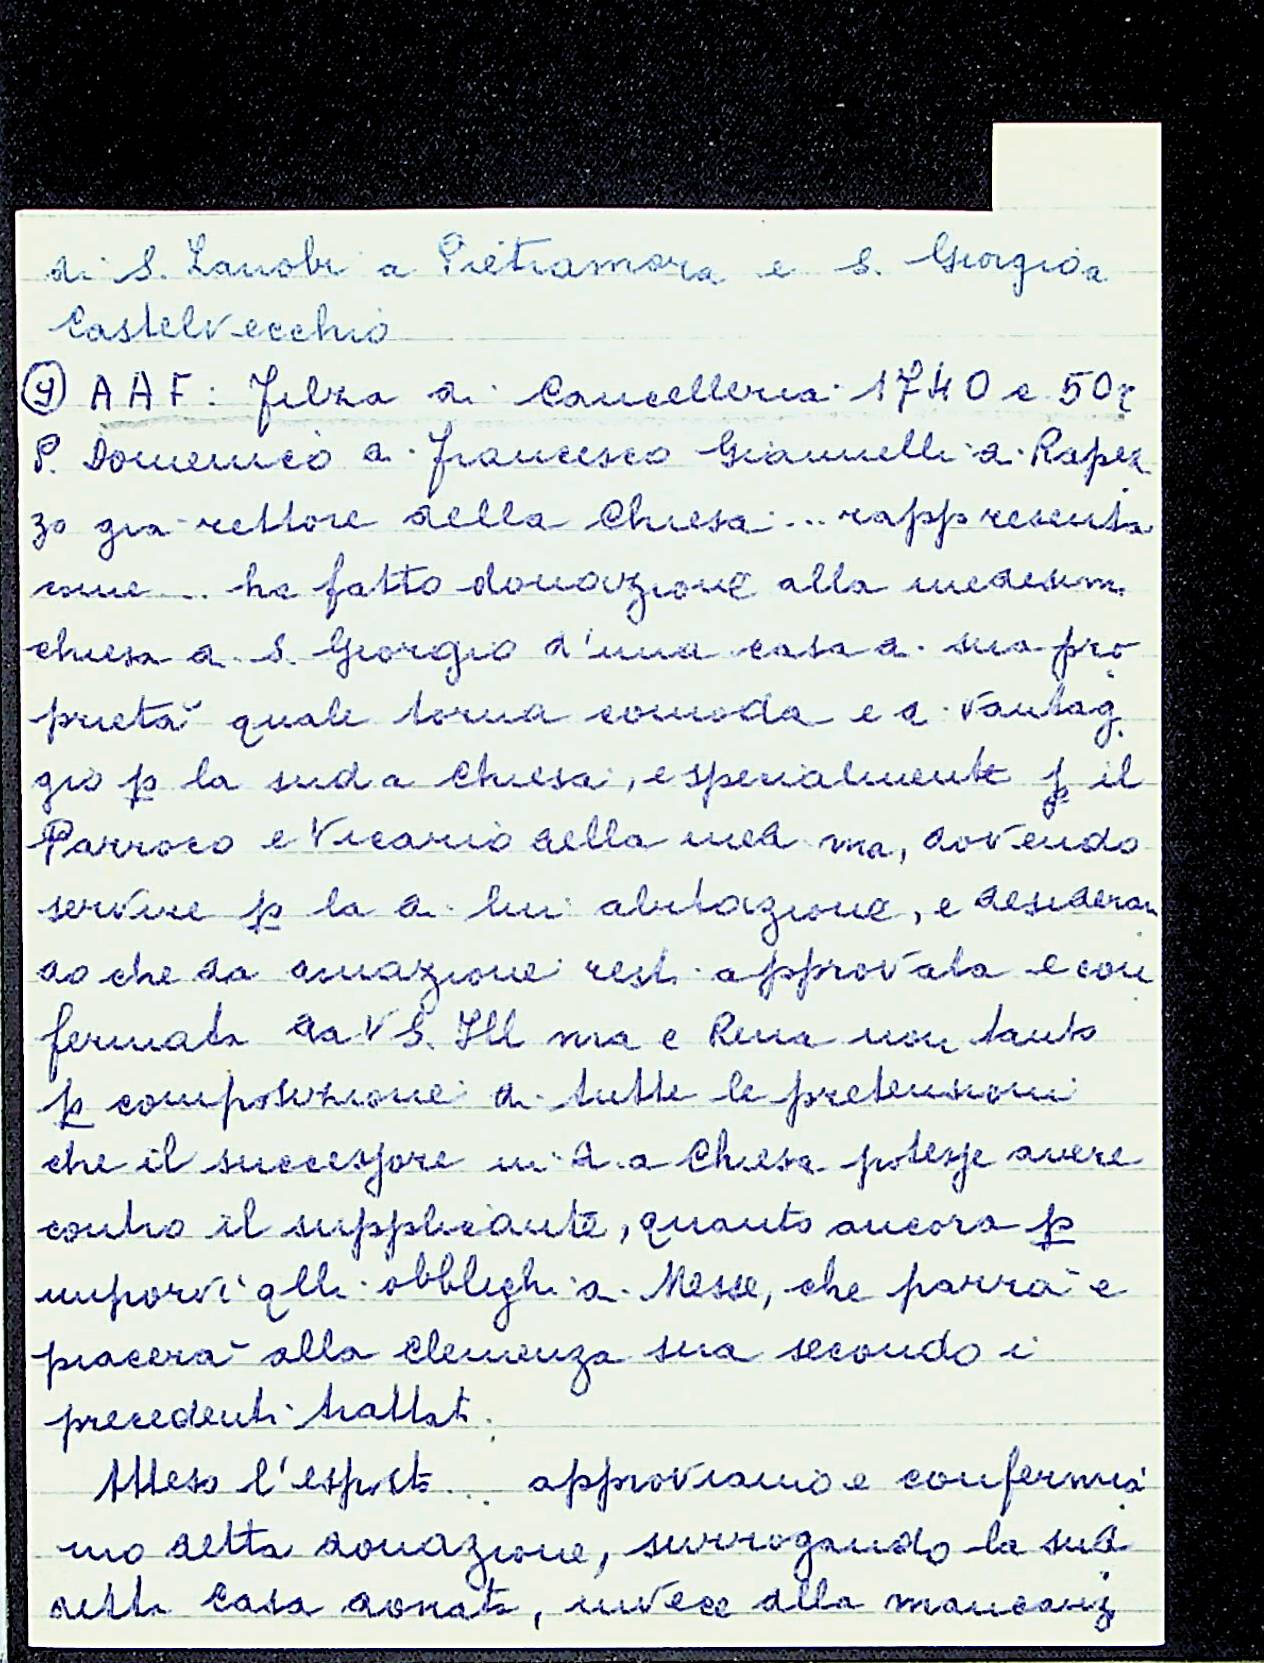 di S. Zanobi a Pietramora e S. Giorgio a
Castelvecchio
⑨ AAF: Filza di Cancelleria 1740 c 50r
P. Domenico di Francesco Giannelli di Rapez
zo già rettore della Chiesa ... rappresenta
come ... ha fatto donazione alla medesim
chiesa di S. Giorgio d'una casa di sua pro
prietà quale torna comoda e di vantag
gio p la sud a Chiesa, e specialmente p il
Parroco e Vicario della med ma, dovendo
servire p la di lui abitazione, e desideran
do che da onazione resti approvata e con
fermata da V S. Ill ma e Rma non tanto
p composizione di tutte le pretensioni
che il successore in d.a Chiesa potesse avere
contro il supplicante, quanto ancora p
imporvi qlli obblighi di Messe, che parrà e
piacerà alla Clemenza sua secondo i
precedenti trattati.
Atteso l'esposto ... approviamo e confermia
mo detta donazione, surrogando la sud
detta Casa donata, invece della mancanz